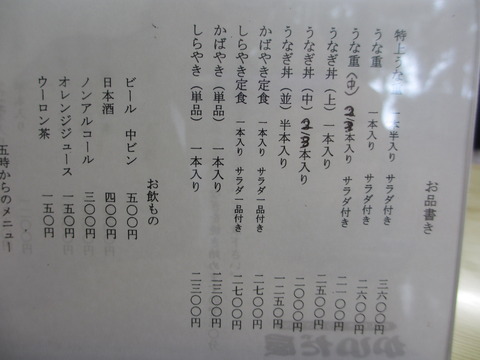 お品書き
特上うな 一本半入り サラダ付き 三六〇〇円
うな重 一本入り サラダ付き 二六〇〇円
うな重(中) 2/3本入り サラダ付き 二一〇〇円
うなぎ丼(上) 一本入り 二五〇〇円
うなぎ丼(中) 2/3本入り 二〇〇〇円
うなぎ丼(並) 半本入り 一二五〇円
かばやき定食 一本入り サラダ一品付き 二七〇〇円
しらやき定食 一本入り サラダ一品付き 二七〇〇円
かばやき(単品) 一本入り 二三〇〇円
しらやき(単品) 一本入り 二三〇〇円
お飲もの
ビール 中ビン 五〇〇円
日本酒 四〇〇円
ノンアルコール 三〇〇円
オレンジジュース 一五〇円
ウーロン茶 一五〇円
五時からのメニュー